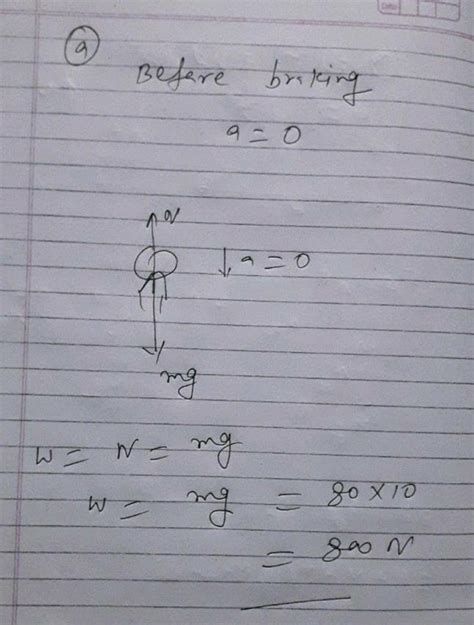 a
Before braking
a = 0
N
↓ a = 0
mg
W = N = mg
W = mg = 80 × 10
= 800 N